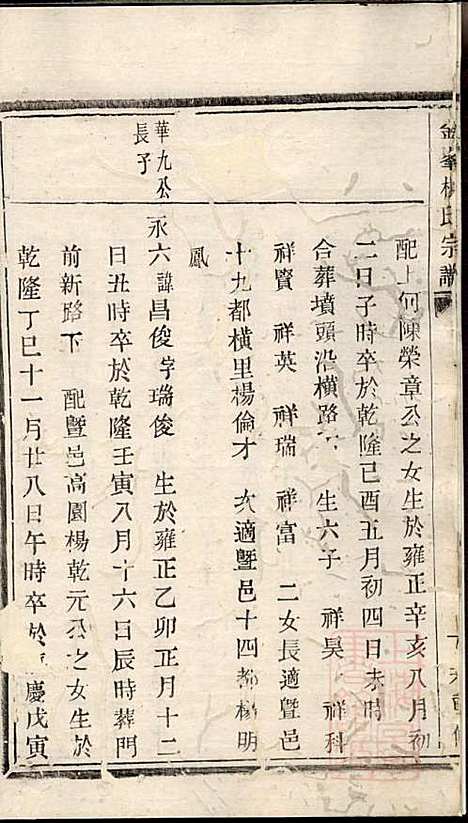 金峯楊氏宗譜
配上何陳榮章公之女生於雍正辛亥八月初
二日子時卒於乾隆己酉五月初四日未時
合葬墳頭沿橫路下 生六子 祥昊 祥科
祥賢 祥英 祥瑞 祥富 二女長適暨邑
十九都橫里楊倫才 次適暨邑十四都楊明
鳳
華九公
長子
永六諱昌俊字瑞俊 生於雍正乙卯正月十二
日丑時卒於乾隆壬寅八月十六日辰時葬門
前新路下 配暨邑高園楊乾元公之女生於
乾隆丁巳十一月廿八日午時卒於慶戊寅